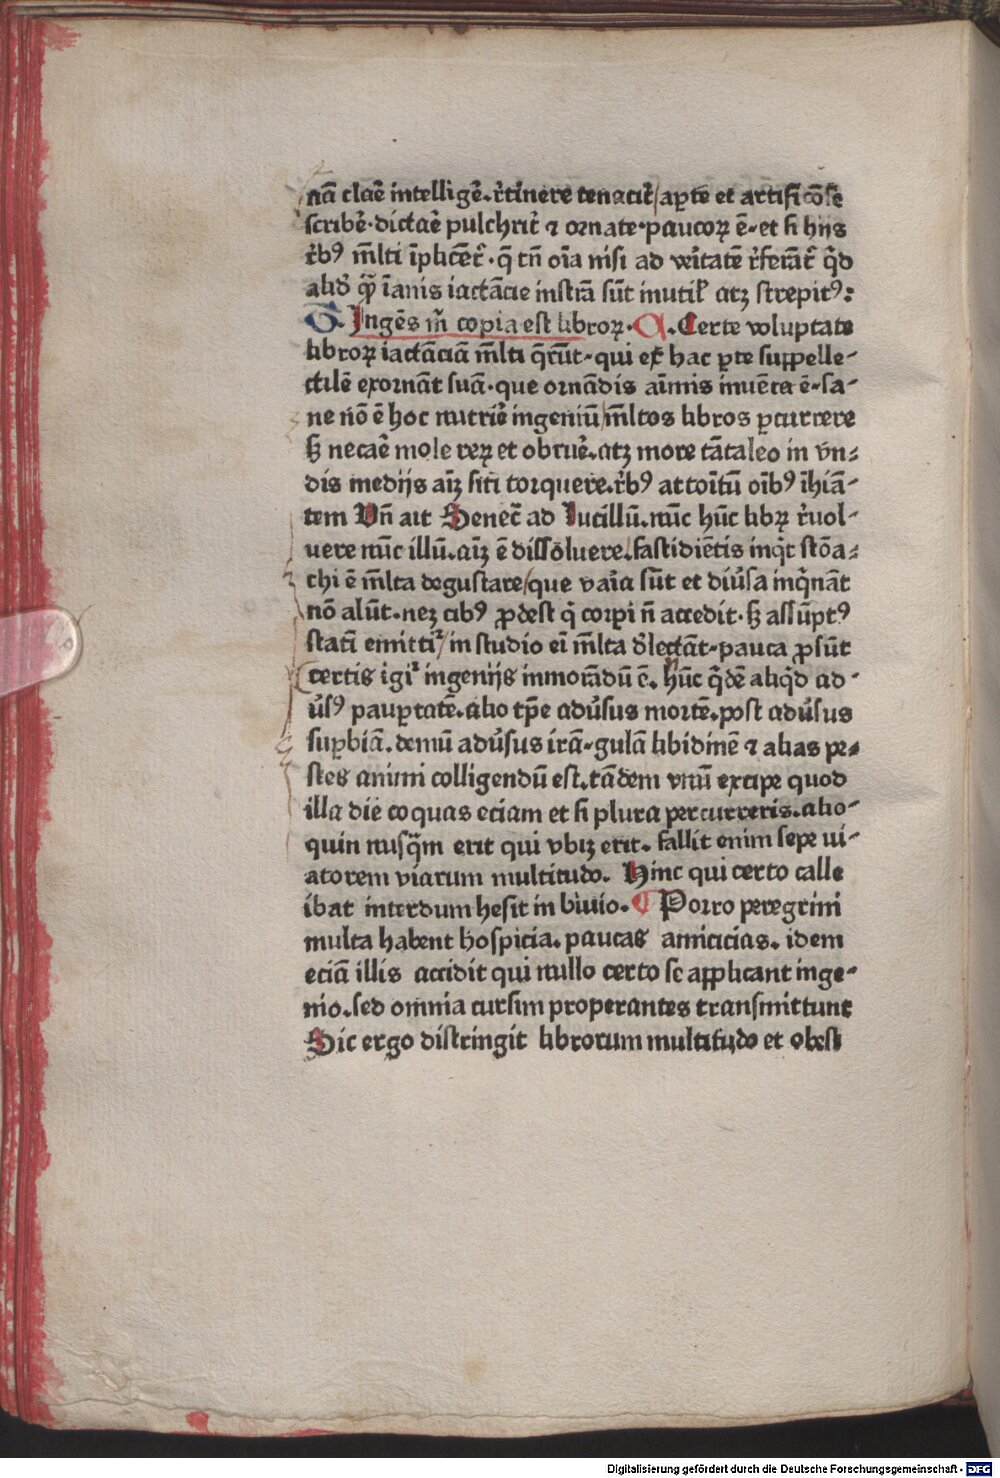 nā clāe intelligē. r̄tīnere tenacit̄ / aꝑte et artificōse
scribē· dictāe pulchrit̄ ⁊ ornate· paucoꝝ ē- et si hijs
r̄bꝰ m̄lti īplicēt̄ · q̄ tn̄ oīa nisi ad veītatē r̄ferāt̄ qͥd
aliđ q̄ꝫ īanis iactācie instrā sūt inutiƚ atqꝫ strepitꝰ:
S. Ingēs m̄ copia est libroꝝ· A. Certe voluptate
libroꝝ iactāciā m̄lti q̄rūt- qui ex hac ꝑte suppelle-
ctilē exornāt suā· que ornādis aīmis inuēta ē- sa-
ne nō ē hoc nutrīe ingeniū / m̄ltos libros ꝑcurrere
sꝫ necāe mole reꝝ et obruē. atqꝫ more tātaleo in vn-
dis medijs aīꝫ siti torquere. r̄bꝰ attoītū oībꝰ īhiā-
tem Vn̄ ait Senec̄ ad Lucillū. nūc hūc libꝝ r̄uol-
uere nūc illū. aīꝫ ē dissōluere. fastidiētis inqͥt stōa-
chi ē m̄lta degustare / que vaīa sūt et diūsa inqͥnāt
nō alūt. neqꝫ cibꝰ ꝓdest qͥ corꝑi n̄ accedit· sꝫ assūptꝰ
statī emittit̄ / in studio eī m̄lta đlectāt- pauca ꝓsūt
certis igit̄ ingenijs inmorādū ē. hīnc qͥdē aliqͥd ad-
ūsꝰ pauꝑtatē. alio tꝑe adūsus mortē. post adūsus
suꝑbiā. demū adūsus irā- gulā libidinē ⁊ alias pe-
stes animi colligendū est. tādem vnū excipe quod
illa die coquas eciam et si plura percurreris. alio-
quin nusqͣm erit qui vbiqꝫ erit. Fallit enim sepe vi-
atorem viarum multitudo. Hinc qui certo calle
ibat interdum hesit in biuio. ¶ Porro peregrini
multa habent hospicia. paucas amicicias. idem
eciā illis accidit qui nullo certo se applicant inge-
nio. sed omnia cursim properantes transmittunt
Sic ergo distringit librorum multitudo et obest
Digitalisierung gefördert durch die Deutsche Forschungsgemeinschaft - DFG